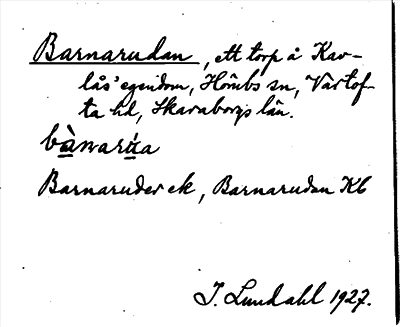 Barnarudan, ett torp å Kav-
lås' egendom, Hömbs sn, Vartof-
ta hd, Skaraborgs län.
bànnarúa
Barnaruder ek, Barnarudan Kb
I. Lundahl 1927.